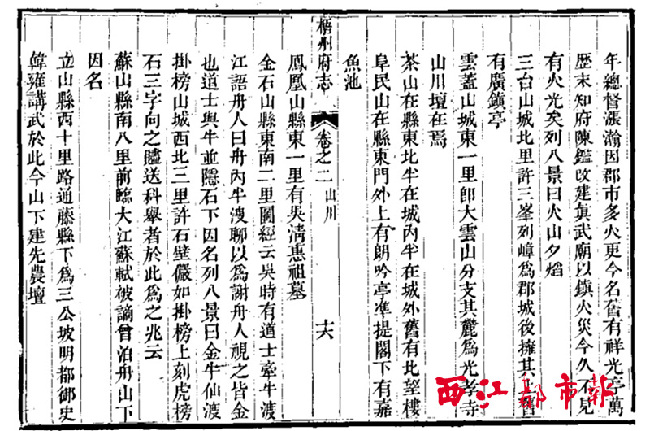 年總督張瀚因郡市多火更今名舊有祥光亭萬
歷末知府陳鑑改建眞武廟以鎭火災今久不見
有火光矣列八景曰火山夕熖
三台山城北里許三峯列嶂爲郡城後擁其
有廣鎭亭
雲蓋山城東一里卽大雲山分支其麓爲光孝寺
山川壇在焉
茶山在縣東北半在城內半在城外舊有北望樓
阜民山在縣東門外上有朗吟亭準提閣下有嘉
魚池
梧州府志
卷之二 山川
十六
鳳凰山縣東一里有吳清惠祖墓
金石山縣東南二里圖經云吳時有道士牽牛渡
江語舟人曰舟內牛溲聊以爲謝舟人視之皆金
也道士與牛並隱石下因名列八景曰金牛仙渡
掛榜山城西北三里許石壁儼如掛榜上刻虎榜
石三字向之騰送科舉者於此爲之兆云
蘇山縣南八里前臨大江蘇軾被謫曾泊舟山下
因名
立山縣西十里路通藤縣下爲三公坡明都御史
韓雍講武於此今山下建先農壇
西江都市報